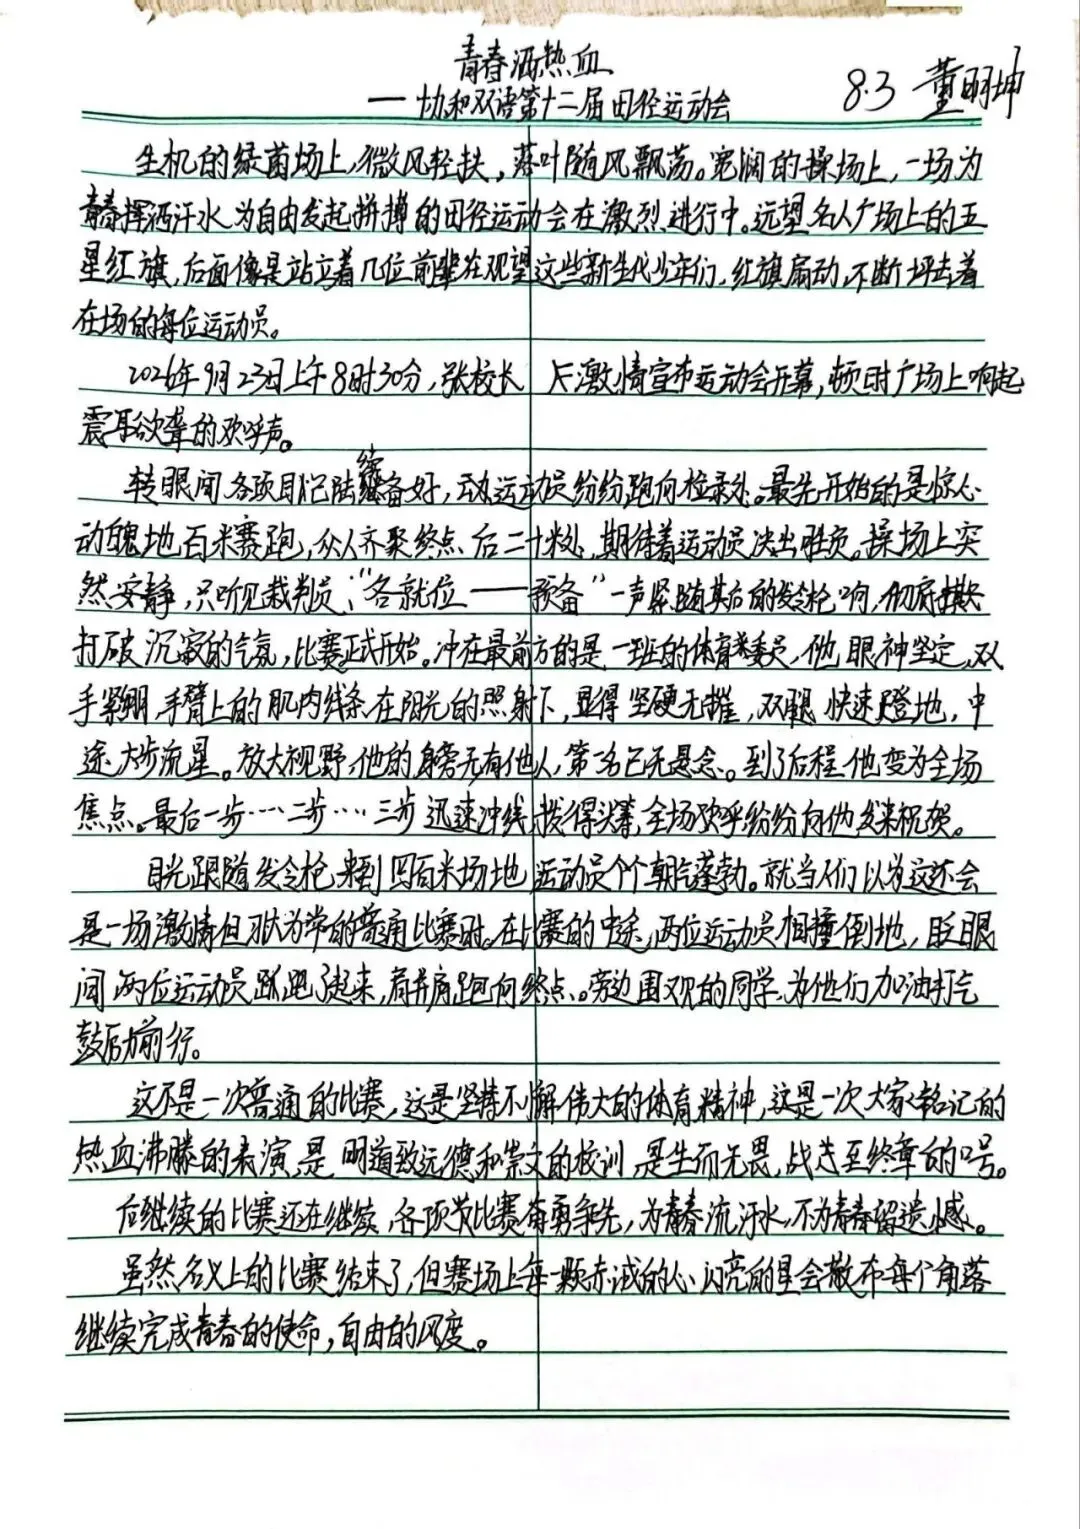 青春洒热血
8.3 董明坤
——协和双语第十二届田径运动会
生机的绿茵场上,微风轻扶,落叶随风飘荡。宽阔的操场上,一场为
青春挥洒汗水,为自由发起拼搏的田径运动会在激烈进行中。远望名人广场上的五
星红旗,后面像是站立着几位前辈在观望这些新生代少年们,红旗扇动,不断呼去着
在场的每位运动员。
2026年9月23日上午8时30分,张校长 激情宣布运动会开幕,顿时广场上响起
震耳欲聋的欢呼声。
转眼间各项目已陆续准备好,运动员纷纷跑向检录处。最先开始的是惊心
动魄地百米赛跑,众人齐聚终点后二十米处,期待着运动员决出胜负。操场上突
然安静,只听见裁判员:“各就位——预备”一声紧随其后的发令枪响,彻底
打破沉寂的气氛,比赛正式开始。冲在最前方的是一班的体育委员,他眼神坚定,双
手紧绷,手臂上的肌肉线条在阳光的照射下,显得坚硬无摧,双腿快速蹬地,中
途大步流星。放大视野,他的身旁无有他人,第一名已无悬念。到了后程他变为全场
焦点。最后一步……二步……三步迅速冲线,拔得头筹,全场欢呼纷纷向他发来祝贺。
目光跟随发令枪来到四百米场地,运动员个个朝气蓬勃。就当人们以为这还会
是一场激情但以为常的普通比赛时。在比赛的中途,两位运动员相撞倒地,眨眼
间两位运动员跃跑了起来,肩并肩跑向终点。旁边围观的同学,为他们加油打气
鼓励前行。
这不是一次普通的比赛,这是坚持不懈伟大的体育精神,这是一次大家铭记的
热血沸腾的表演,是明道致远德和崇文的校训,是生而无畏,战至终章的口号。
后继续的比赛还在继续,各项比赛奋勇争先,为青春流汗水,不为青春留遗憾。
虽然名义上的比赛结束了,但赛场上每一颗赤诚的心闪亮的星会散布每个角落
继续完成青春的使命,自由的风度。